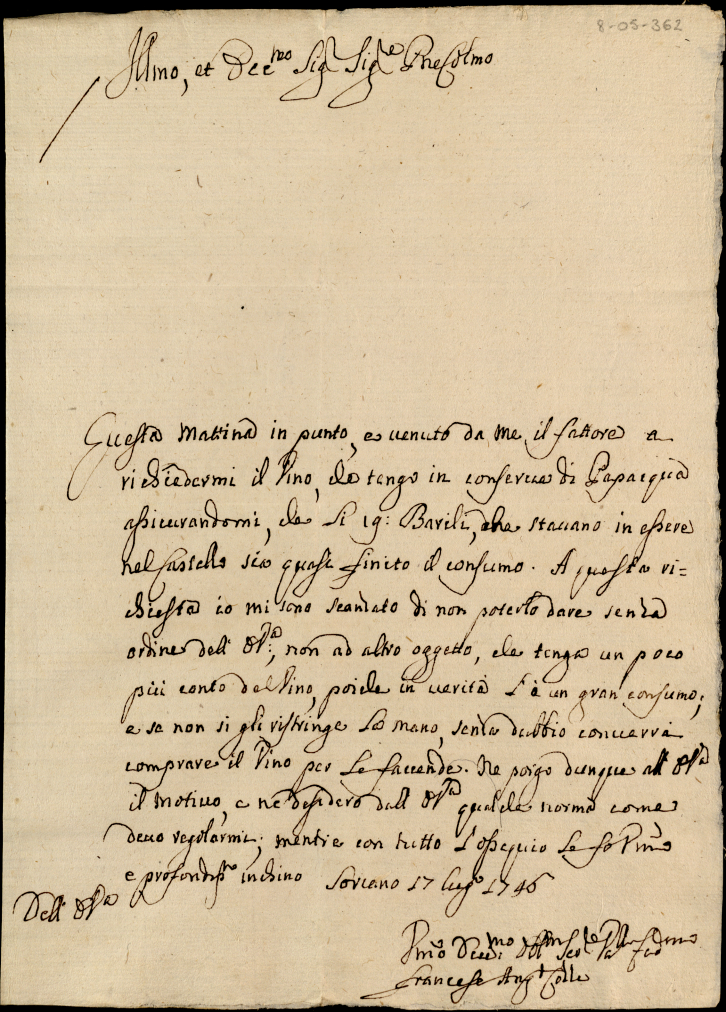 8-05-362
Illmo, et Recmo Sigr Sigre Pne Colmo
Questa Mattina in punto, e venuto da me il fattore a
richiedermi il Vino, che tengo in conserva di Papacqua
assicurandomi, che li 19: Barili, che stavano in essere
nel Castello sia quasi finito il consumo. A questa ri=
chiesta io mi sono scansato di non poterlo dare senza
ordine dell' VSa:, non ad altro oggetto, che tenga un poco
più conto del Vino, poiche in verità l'è un gran consumo;
e se non si gli ristringe la mano, senza dubbio converrà
comprare il Vino per le faccende. Ne porgo dunque all' VSa
il motivo, e ne desidero dall' VSa qualche norma come
devo regolarmi; mentre con tutto l'ossequio le fo Umo
e profondisso inchino Soriano 17 luglo 1746
Dell' VSa
Umo
Francesco Angl